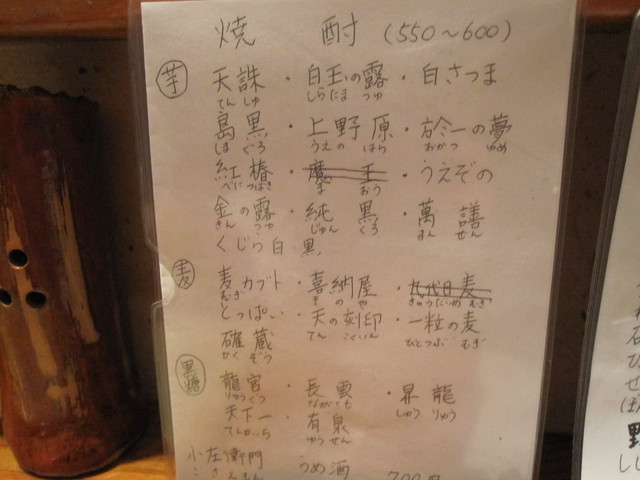 焼 酎 (550〜600)
芋 天誅 ・ 白玉の露 ・ 白さつま
てん しゅ しらたま つゆ
島黒 ・ 上野原 ・ 於一の夢
しま ぐろ うえ の はら おかつ ゆめ
紅椿 ・ 魔王 ・ うえぞの
べに つばき ま おう
金の露 ・ 純黒 ・ 萬膳
きん つゆ じゅん くろ まん ぜん
くじら 白 黒
麦 麦カブト ・ 喜納屋 ・ 九代目麦
むぎ き の や きゅうだいめ むぎ
とっぱい ・ 天の刻印 ・ 一粒の麦
てん こくいん ひとつぶ むぎ
確蔵
かく ぞう
黒糖 龍宮 ・ 長雲 ・ 昇龍
りゅう ぐう ながくも しゅう りゅう
天下一 ・ 有泉
てんかいち ゆう せん
小左衛門 うめ酒